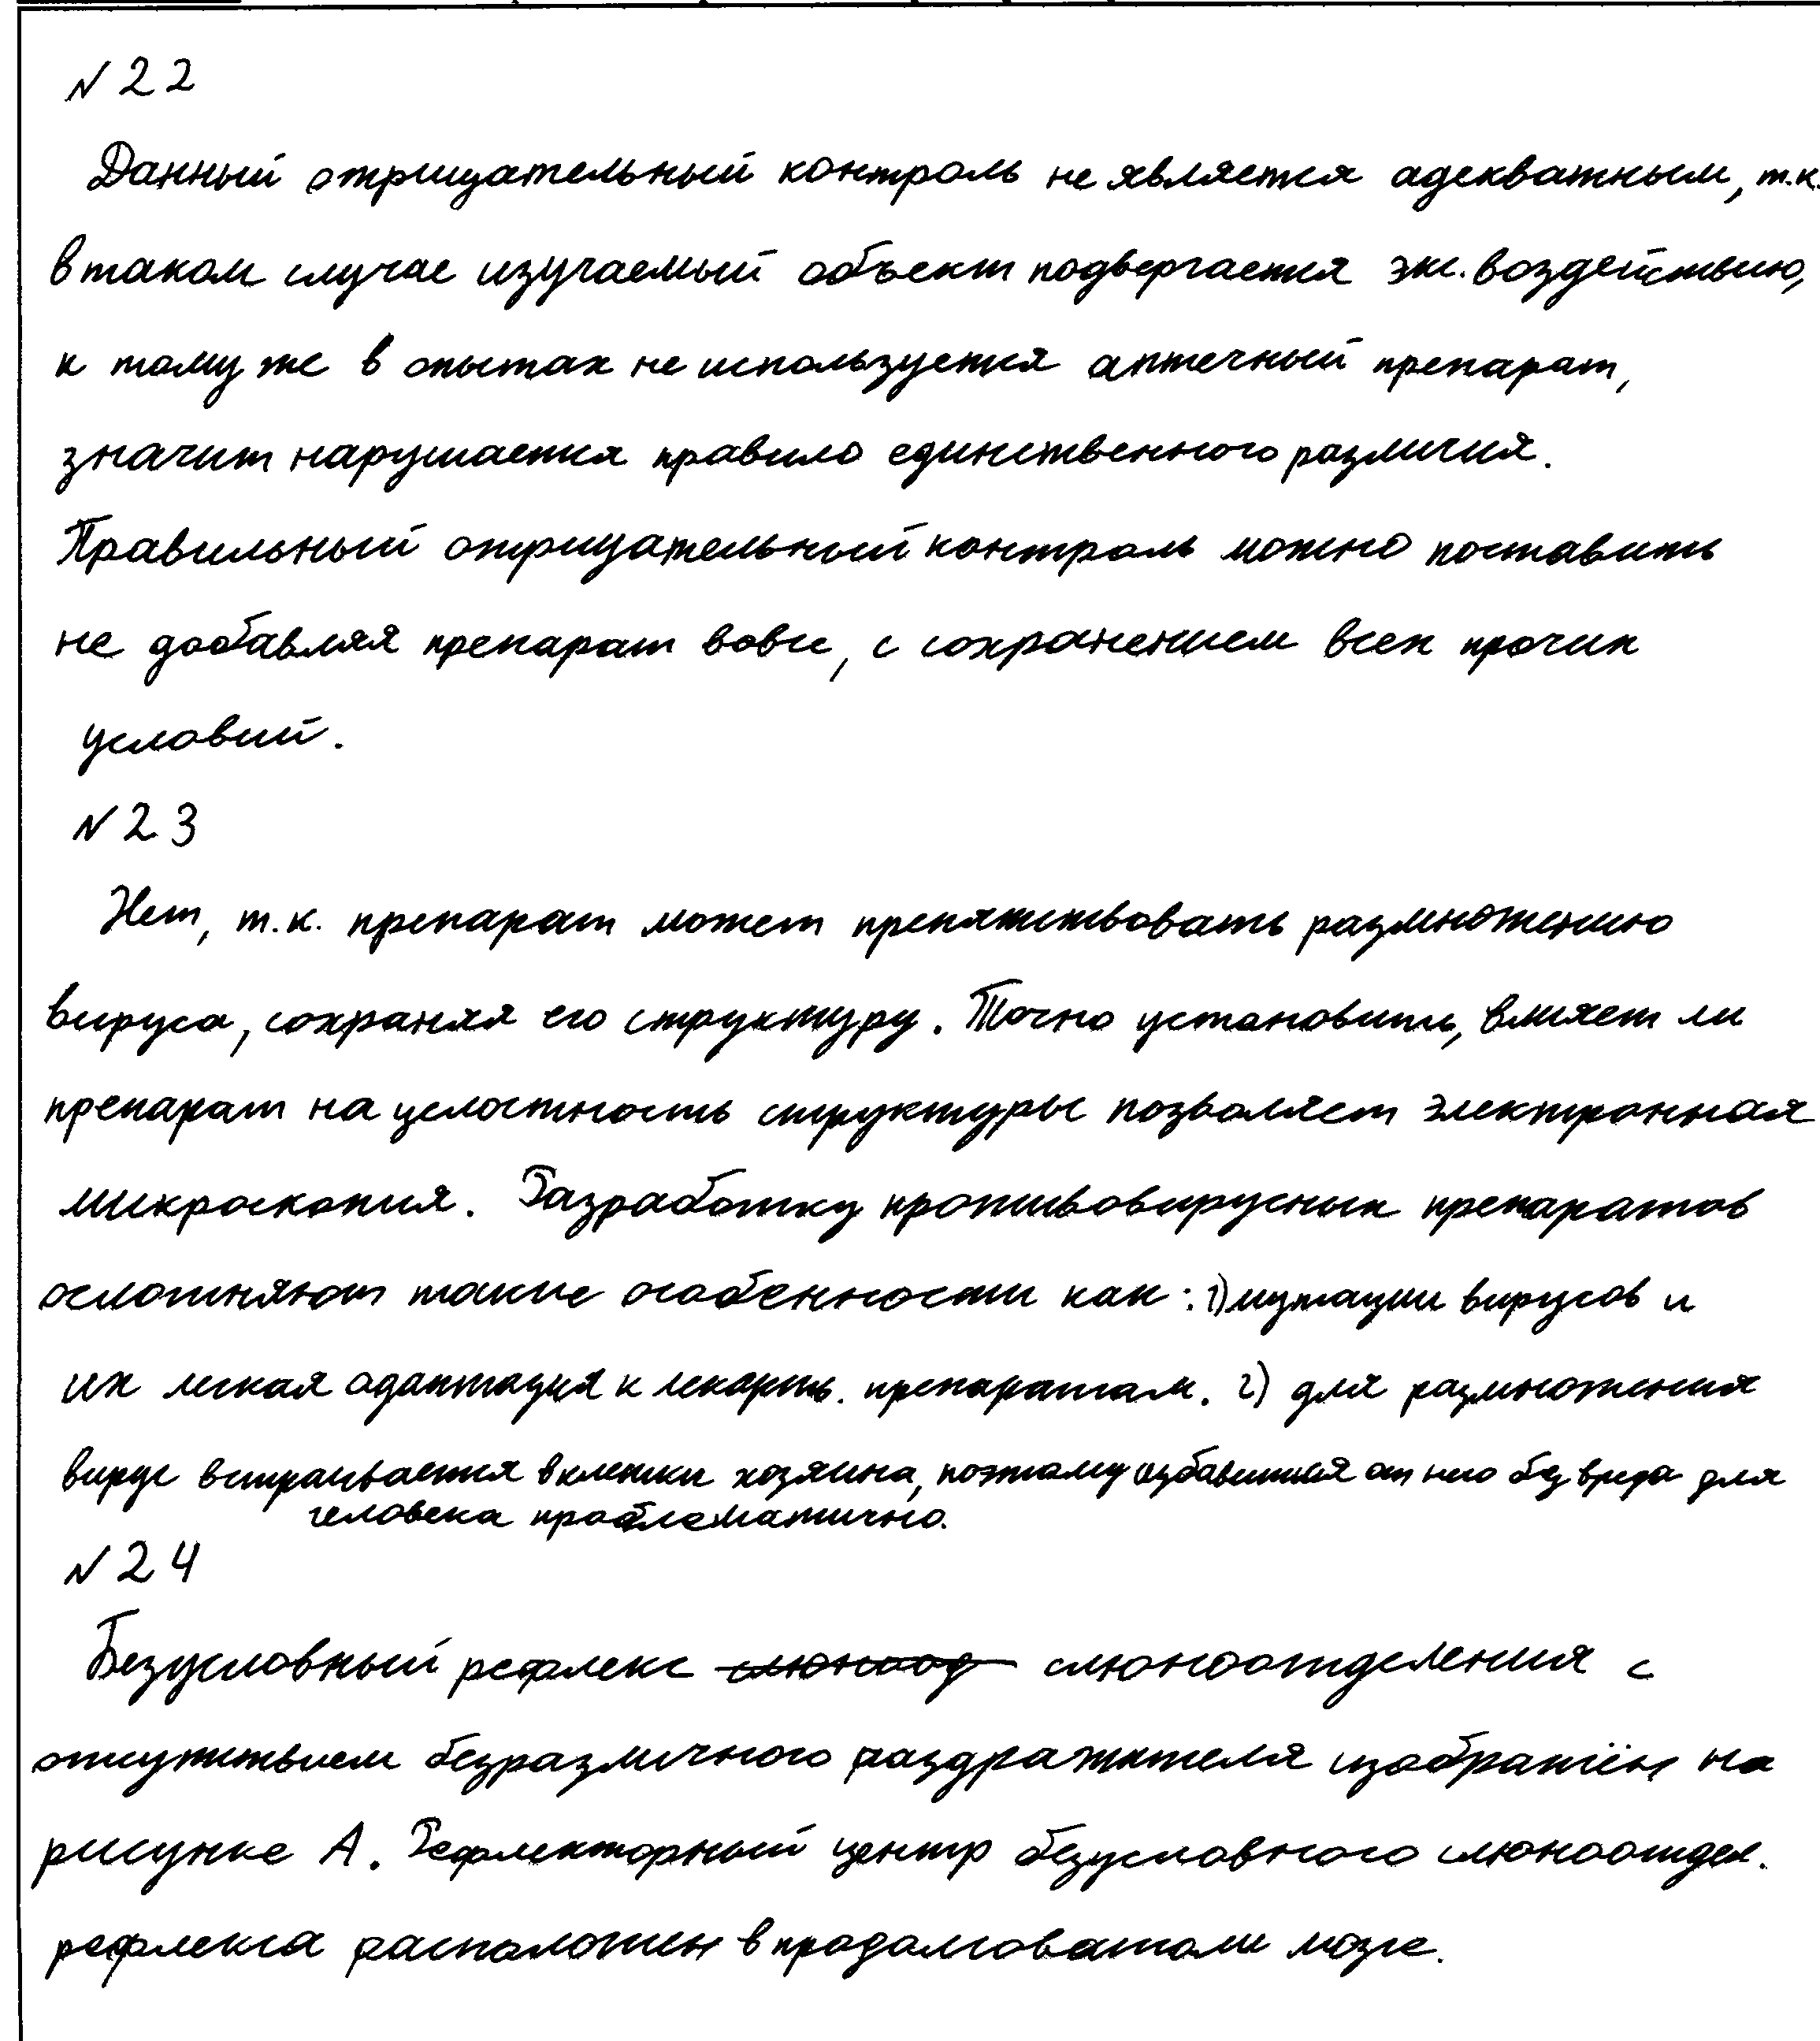 № 22
Данный отрицательный контроль не является адекватным, т.к.
в таком случае изучаемый объект подвергается экс. воздействию,
к тому же в опытах не используется аптечный препарат,
значит нарушается правило единственного различия.
Правильный отрицательный контроль можно поставить
не добавляя препарат вовсе, с сохранением всех прочих
условий.
№ 23
Нет, т.к. препарат может препятствовать размножению
вируса, сохраняя его структуру. Точно установить, влияет ли
препарат на целостность структуры позволяет электронная
микроскопия. Разработку противовирусных препаратов
осложняют такие особенности как: 1) мутации вирусов и
их легкая адаптация к лекарств. препаратам. 2) для размножения
вирус встраивается в клетки хозяина, поэтому избавиться от него без вреда для
человека проблематично.
№ 24
Безусловный рефлекс слюноотделения с
отсутствием безразличного раздражителя изображён на
рисунке А. Рефлекторный центр безусловного слюноотдел.
рефлекса расположен в продолговатом мозге.